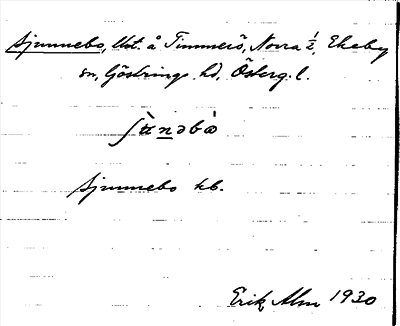 Sjunnebo, Ust. å Timmerö, Norra ½, Ekeby
sn, Göstrings hd, Österg. l.
Sjunnebo kb.
Erik Alm 1930